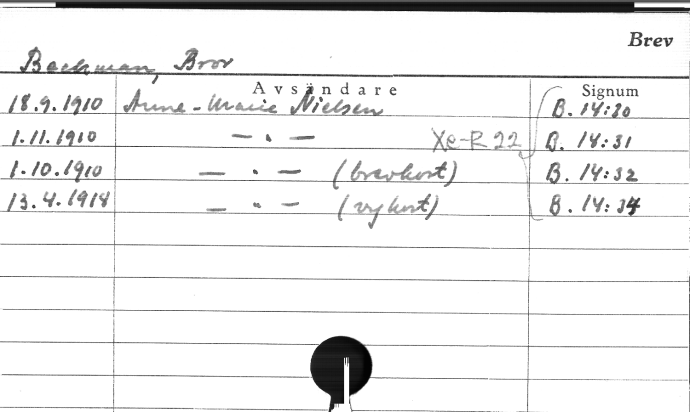 Brev
Backman, Bror
Avsändare Signum
18.9.1910 Anne-Marie Nielsen B. 14:30
1.11.1910 — " — Xe-R 22 B. 14:31
1.10.1910 — " — (brevkort) B. 14:32
13.4.1918 — " — (vykort) B. 14:34